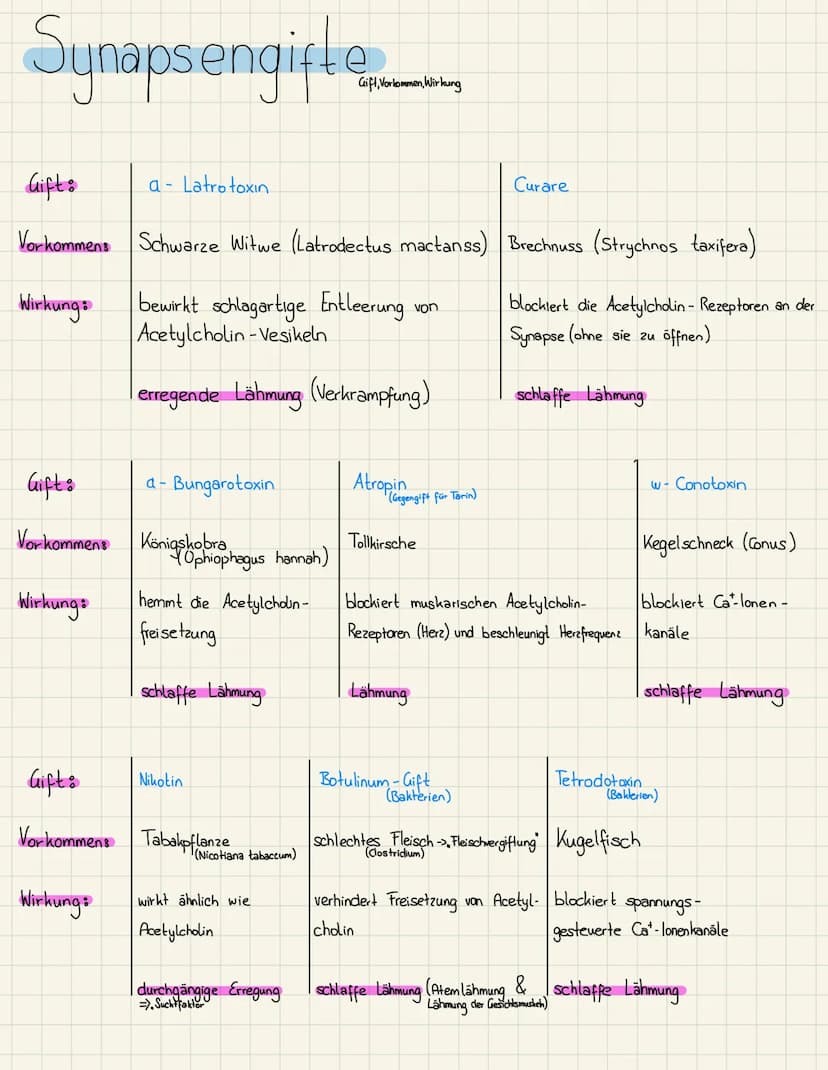 Synapsengifte
Gift, Vorkommen, Wirkung
Gift:
α - Latrotoxin
Curare
Vorkommen:
Schwarze Witwe (Latrodectus mactanss)
Brechnuss (Strychnos taxifera)
Wirkung:
bewirkt schlagartige Entleerung von
Acetylcholin-Vesikeln
blockiert die Acetylcholin-Rezeptoren an der
Synapse (ohne sie zu öffnen)
erregende Lähmung (Verkrampfung)
schlaffe Lähmung
Gift:
α - Bungarotoxin
Atropin
(Gegengift für Tarin)
w- Conotoxin
Vorkommen:
Königskobra
(Ophiophagus hannah)
Tollkirsche
Kegelschneck (Conus)
Wirkung:
hemmt die Acetylcholin-
freisetzung
blockiert muskarischen Acetylcholin-
Rezeptoren (Herz) und beschleunigt Herzfrequenz
blockiert Ca⁺-Ionen-
kanäle
schlaffe Lähmung
Lähmung
schlaffe Lähmung
Gift:
Nikotin
Botulinum-Gift
(Bakterien)
Tetrodotoxin
(Bakterien)
Vorkommen:
Tabakpflanze
(Nicotiana tabaccum)
schlechtes Fleisch -> „Fleischvergiftung"
(Clostridium)
Kugelfisch
Wirkung:
wirkt ähnlich wie
Acetylcholin
verhindert Freisetzung von Acetyl-
cholin
blockiert spannungs-
gesteuerte Ca⁺-Ionenkanäle
durchgängige Erregung
=> Suchtfaktor
schlaffe Lähmung (Atemlähmung &
Lähmung der Gesichtsmuskeln)
schlaffe Lähmung